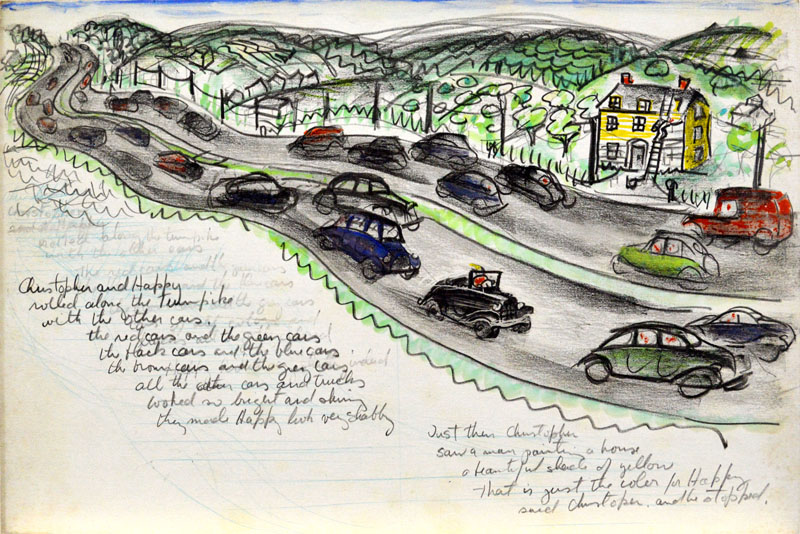 Christopher and Happy
rolled along the turnpike
with the other cars.
the red cars and the green cars
the black cars and the blue cars
the brown cars and the grey cars
all the other cars and trucks
looked so bright and shiny
they made Happy look very shabby
Just then Christopher
saw a man painting a house
a beautiful shade of yellow
That is just the color for Happy,
said Christoper. and he stopped.